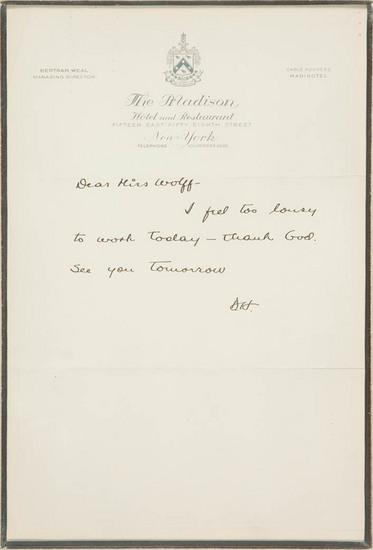 BERTRAM WEAL
MANAGING DIRECTOR
CABLE ADDRESS
MADIHOTEL
The Madison
Hotel and Restaurant
FIFTEEN EAST FIFTY EIGHTH STREET
New York
TELEPHONE
Dear Miss Wolff-
I feel too lousy
to work today - thank God.
See you tomorrow
DH.